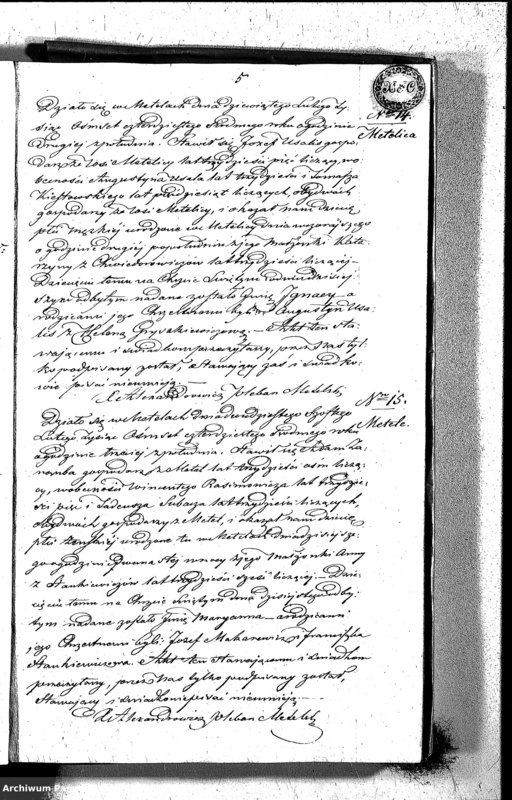 5
Działo się w Metelach dnia dziewiątego Lutego ty-
siąc Ośmset czterdziestego Siódmego roku o godzinie
drugiej z południa. Stawił się Józef Usalis gospo-
darz ze wsi Metelicy lat trzydzieści pięć liczący, w o-
becności Augustyna Usala lat trzydzieści i Tomasza
lat pięćdziesiąt liczących, obydwóch
gospodarzy ze wsi Metelicy, i okazał nam dziecię
płci męzkiej urodzone we Metelicy dnia wczorajszego
o godzinie drugiej popołudniu z jego małżonki Kata-
rzyny z Chwiedorowiczów lat trzydzieści liczącej.
Dziecięciu temu na Chrzcie Świętym w dniu dzisiej-
szym odbytym nadane zostało Imię Ignacy a
rodzicami jego Chrzestnemi byli Augustyn Usa-
lis, z Heleną Gryszkiewiczową. — Akt ten sta-
wającemu i świadkom przeczytany, przez Nas tyl-
ko podpisany został, stawający zaś i świadko-
wie pisać nieumieją.
X. Alexandrowicz Pleban Metelski
Nro 14.
Metelica
Działo się w Metelach dnia dwudziestego Szóstego
Lutego tysiąc Ośmset czterdziestego Siódmego roku
o godzinie trzeciej z południa. Stawił się Adam Za-
remba gospodarz z Metel lat trzydzieści ośm liczą-
cy, w obecności Wincentego Rasimowicza lat trzydzie-
ści pięć i Tadeusza Subacza lat trzydzieści liczących,
obydwóch gospodarzy z Metel, i okazał nam dziecię
płci żeńskiej urodzone tu w Metelach dnia dzisiejsze-
go o godzinie dwunastej w nocy z jego małżonki Anny
z Stankiewiczów lat trzydzieści sześć liczącej. — Dzie-
cięciu temu na Chrzcie Świętym dnia dzisiejszego odby-
tym nadane zostało Imię Maryanna — a rodzicami
jego Chrzestnemi byli: Józef Makarewicz i Franciszka
Stankiewiczowa. Akt ten stawającemu i świadkom
przeczytany, przez Nas tylko podpisany został,
stawający i świadkowie pisać nieumieją —
X. Alexandrowicz Pleban Metelski
Nro 15.
Metele.
Archiwum Pa